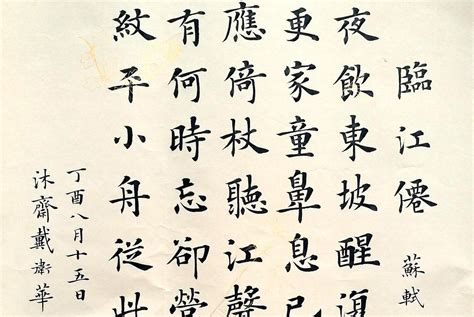 臨江僊
蘇軾
夜飲東坡醒復
更家童鼻息已
應倚杖聽江聲
有何時忘卻營
紋平小舟從此
丁酉八月十五日
沐齋戴衛華